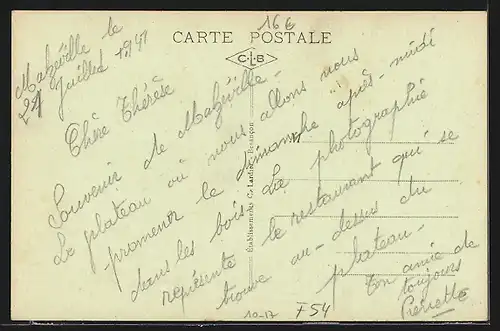 16€
CARTE POSTALE
C·L·B
Malzéville le
27 Juillet 1941
Chère Thérèse
Souvenir de Malzéville.
Le plateau où nous allons nous
promener le dimanche après-midi
dans les bois. La photographie
représente le restaurant qui se
trouve au-dessus du
plateau.
Ton amie de
toujours
Pierrette
Etablissements C. Lardier - Besançon
10-17
F54